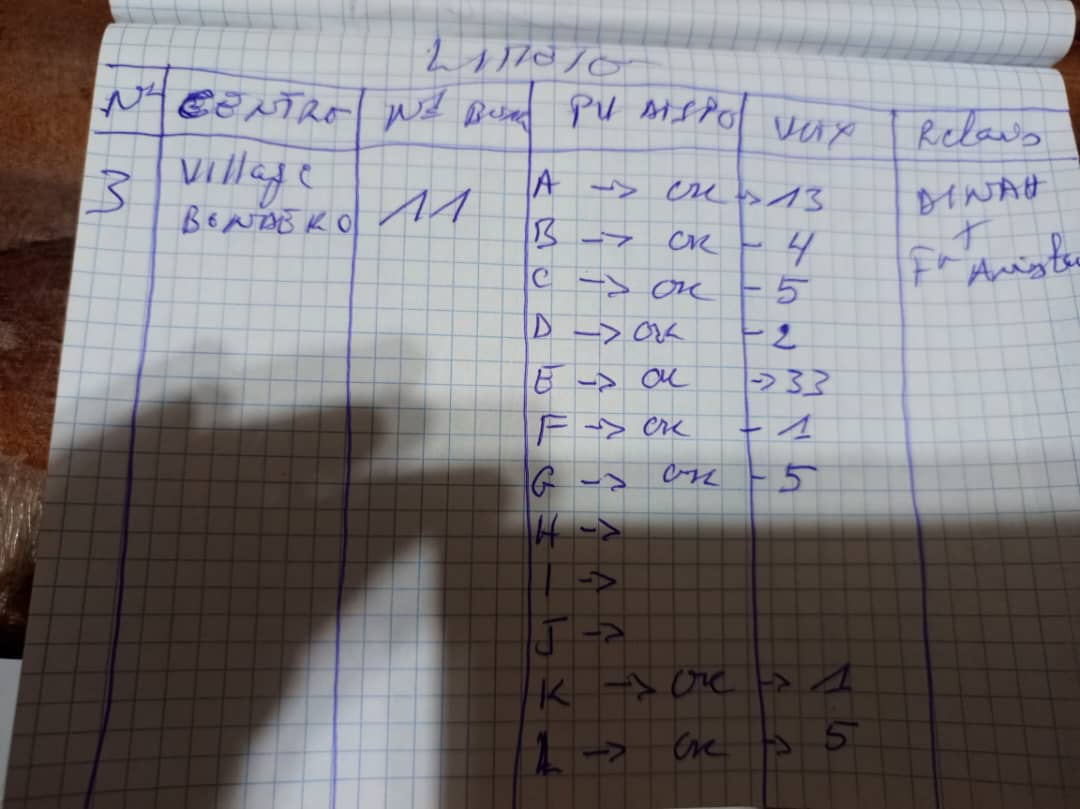 N° CENTRE N° Bur PV DISPO VOIX Relais
3 Village BENDEKO 11 A → OK → 13 DINAH
B → OK - 4 +
C → OK - 5 Fr
D → OK - 2
E → OK → 33
F → OK - 1
G → OK - 5
H →
I →
J →
K → OK → 1
L → OK → 5